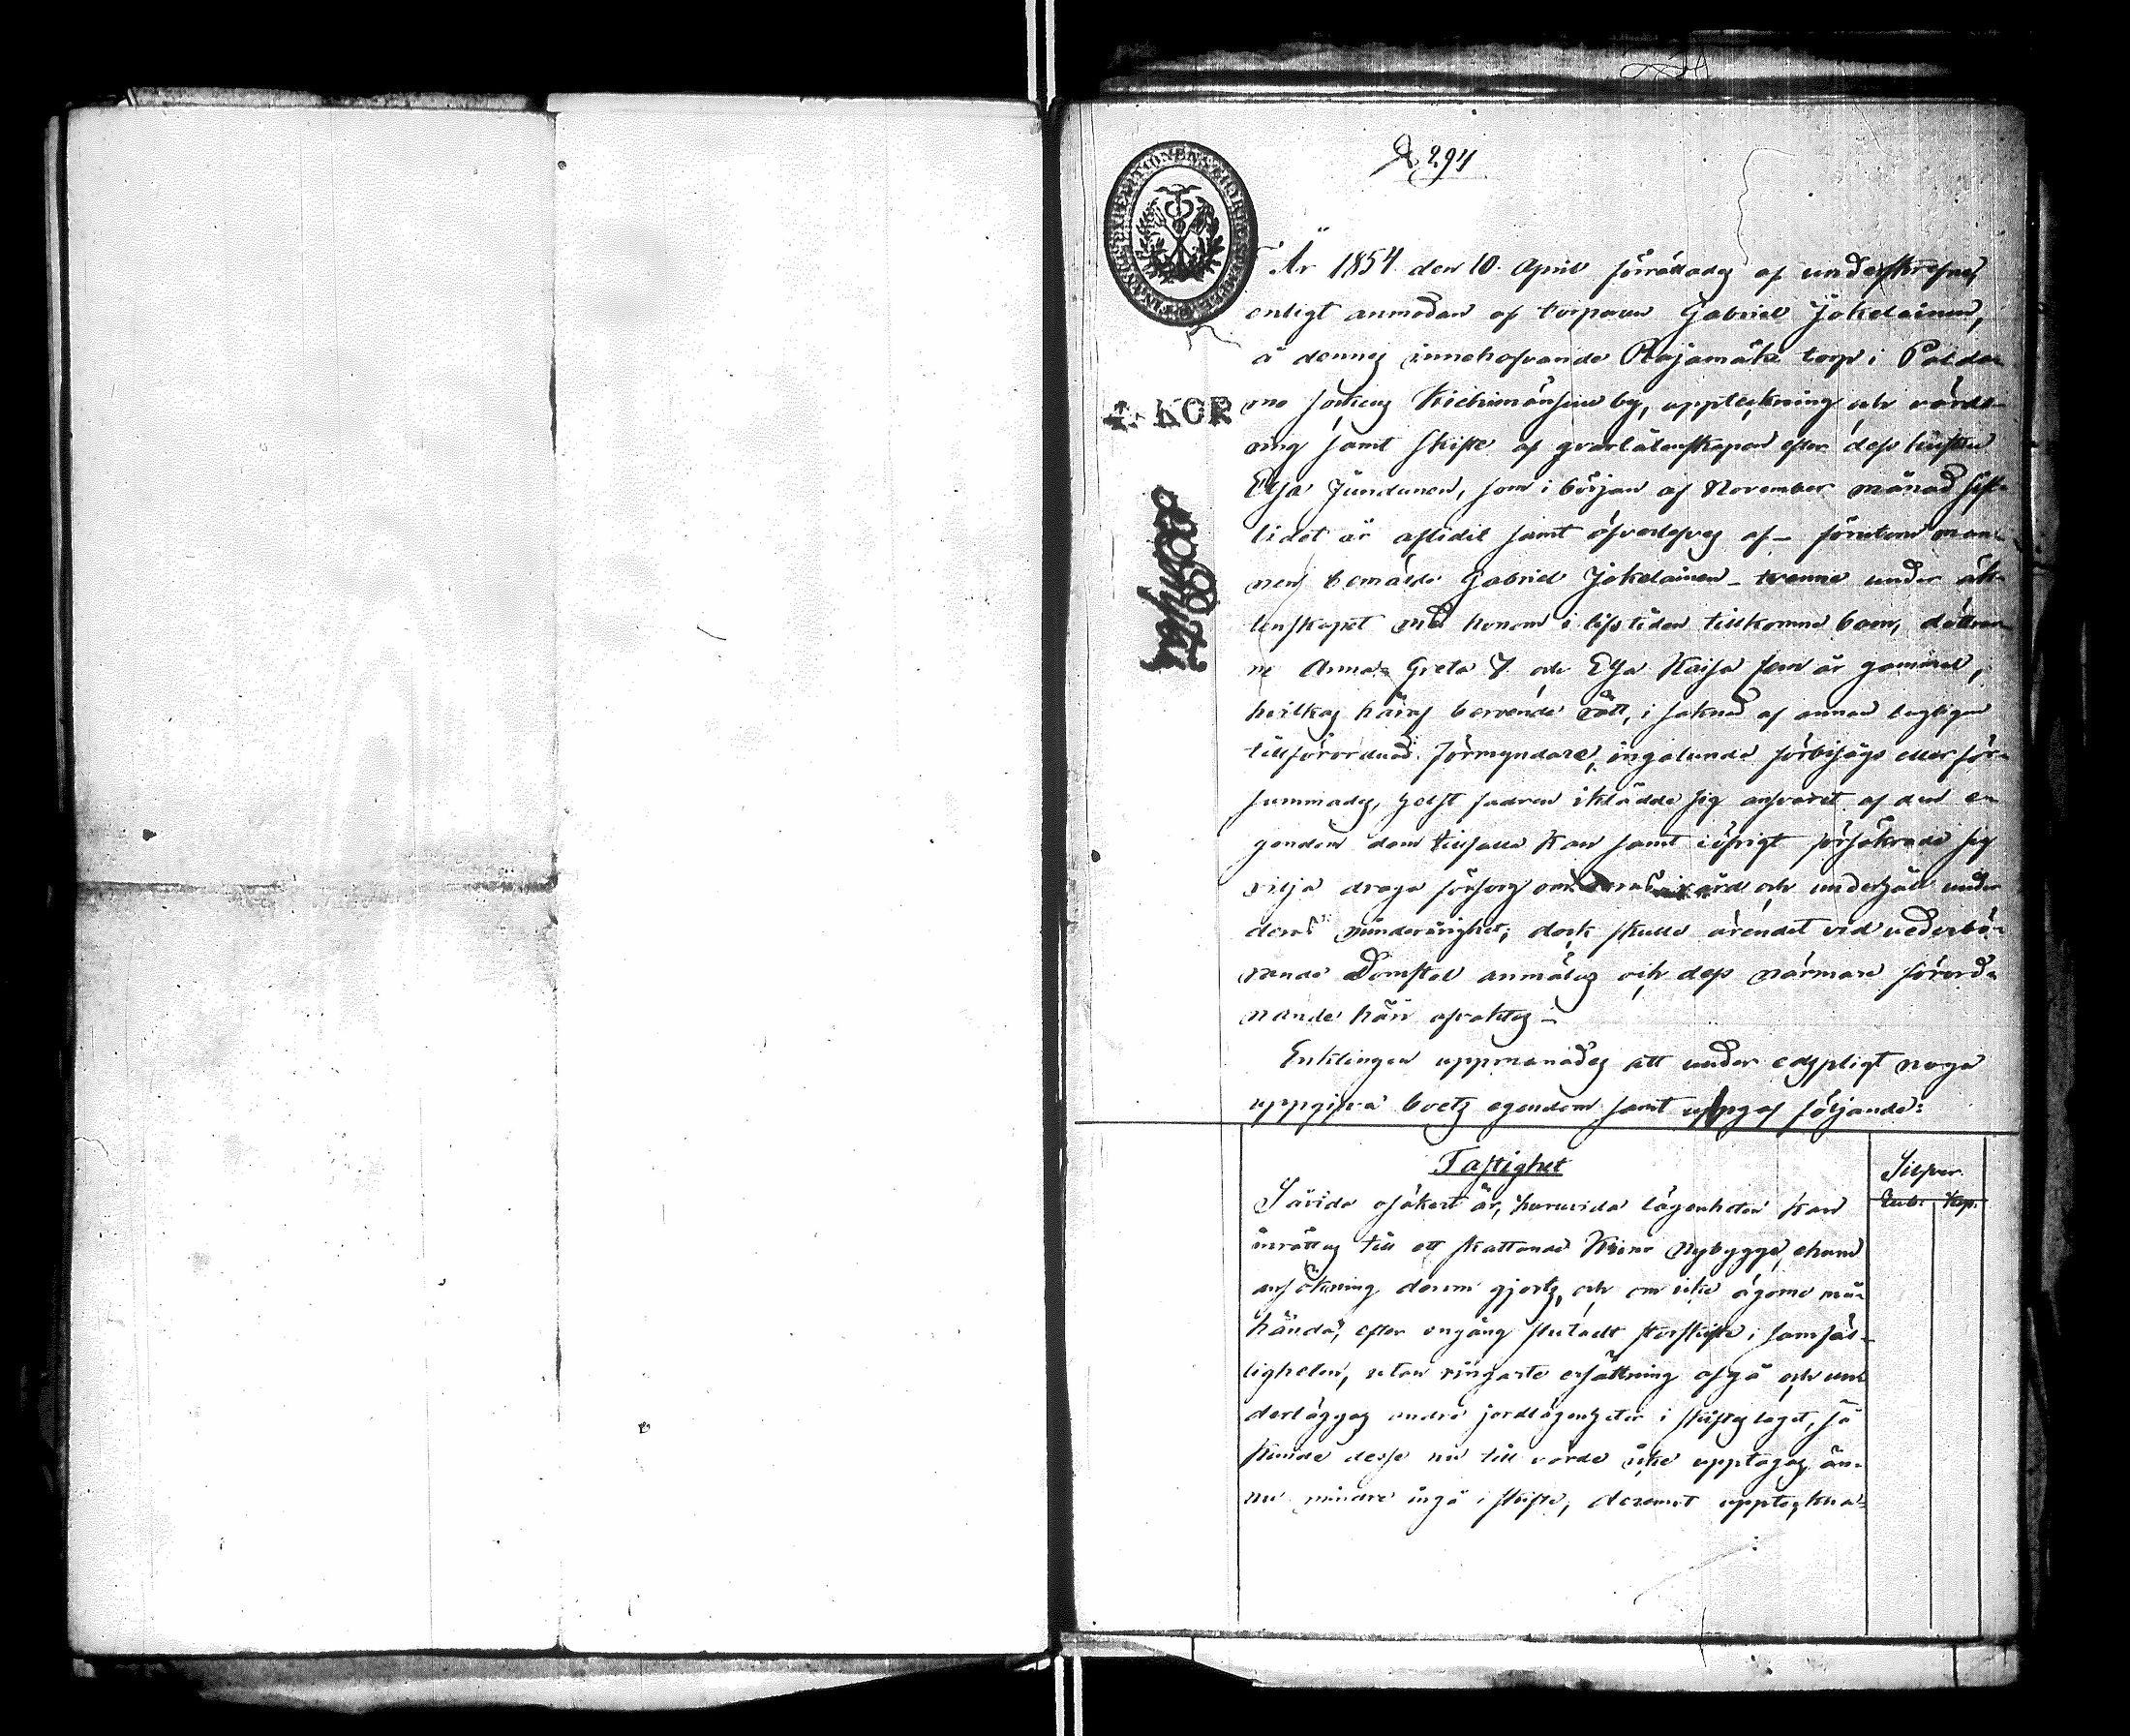 294
År 1854 den 10. April förrättades af underskrefne,
enligt anmodan af torparen Gabriel Jokelainen,
å dennes innehafvande Rajamäki torp i Palda-
mo sockens Kiehimänsuu by, uppteckning och värde-
ring samt skifte af qvarlåtenskapen efter dess hustru
Elsa Juntunen, som i början af November månad sist-
lidet år aflidit samt öfverlefves af – förutom man-
nen bemälde Gabriel Jokelainen – tvenne under äk-
tenskapet med honom i lifstiden tillkomne barn, döttrar-
ne Anna Greta 7 och Elsa Kaisa fem år gammal,
hvilkas häraf beroende rätt, i saknad af annan lagligen
tillförordnad förmyndare, ingalunda förbisågs eller för-
summades, helst fadren iklädde sig ansvaret af den e-
gendom dem tillfalla kan samt iöfrigt försäkrade sig
vilja draga försorg om deras vård och underhåll under
deras minderårighet; dock skulle ärendet vid vederbö-
rande Domstol anmälas och dess närmare förord-
nande häri afvaktas –
Enklingen uppmanades att under edsplikt noga
uppgifva boets egendom samt uppgaf följande:
Fastighet
Silfver
Rub. Kop.
Såvida osäkert är, huruvida lägenheten kan
inrättas till ett skattande Krono Nybygge, ehuru
ansökning derom gjorts, och om icke ägorne må-
hända, efter engång slutadt storskifte i samfäl-
ligheten, utan ringaste ersättning afgå och un-
derläggas andra jordlägenheter i skifteslaget, så
kunde desse nu till värde icke upptagas än-
nu mindre ingå i skifte, deremot uppteckna-
4. KOP